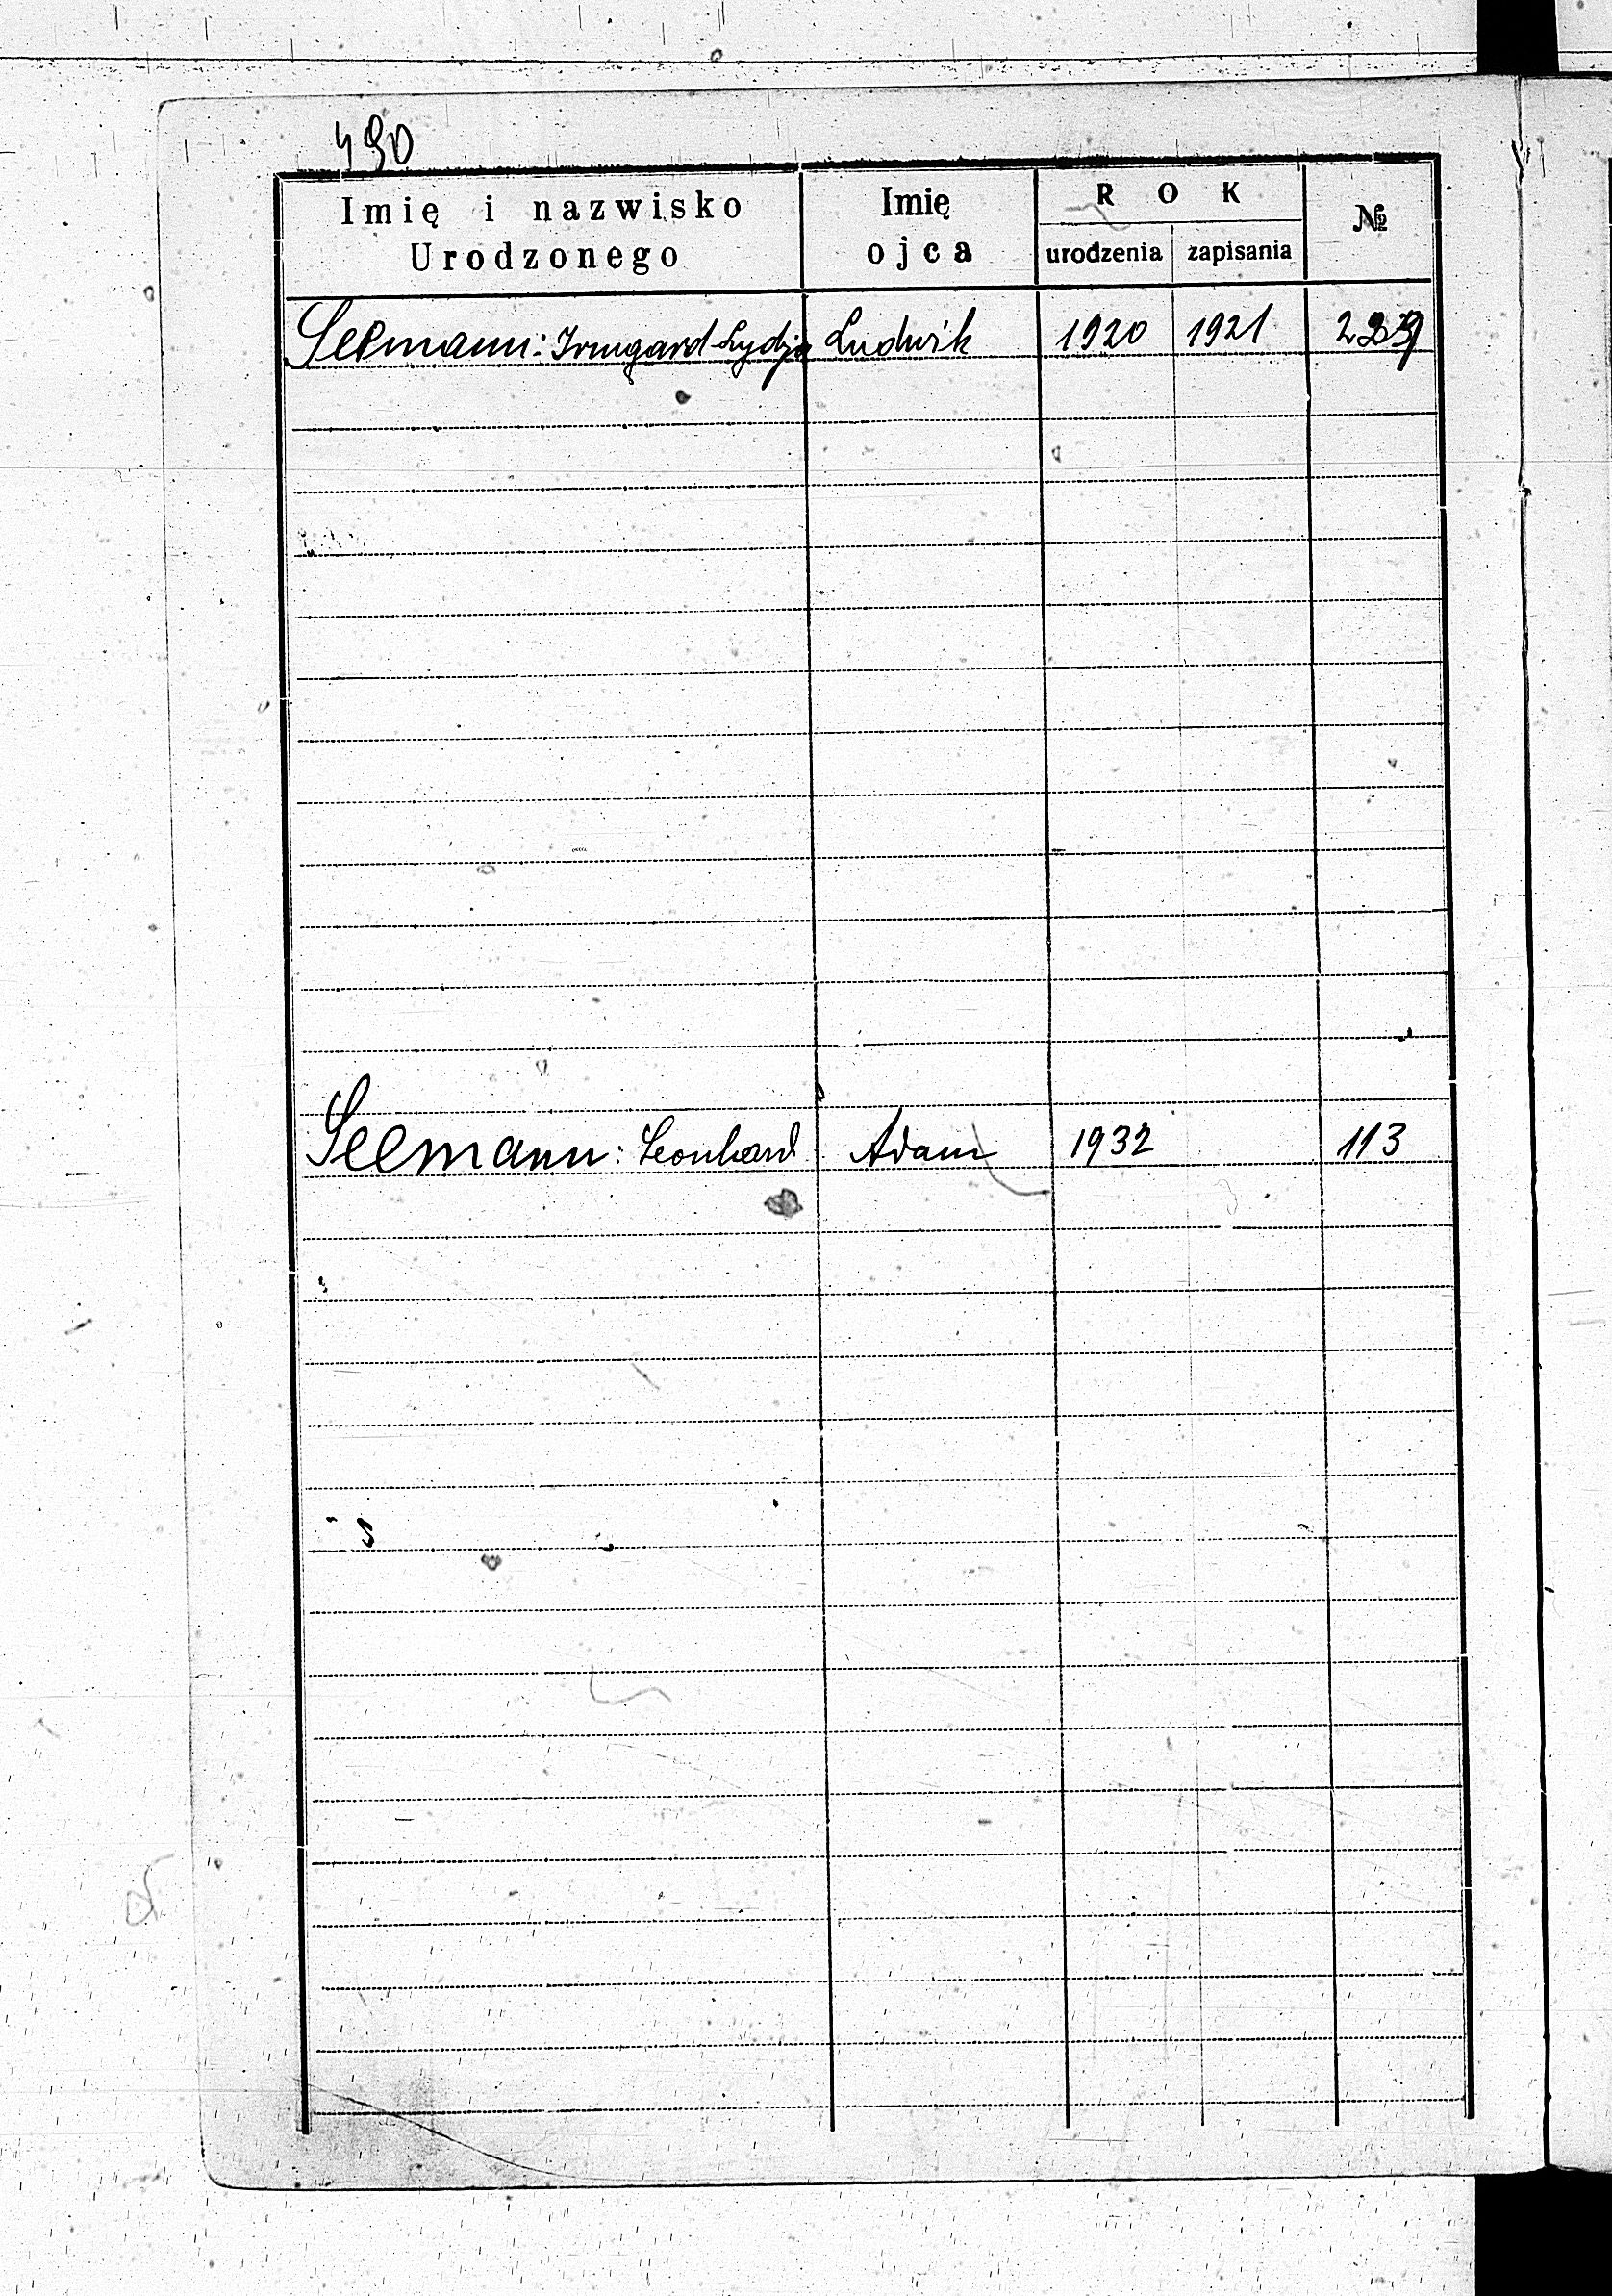 490
Imię i nazwisko Urodzonego
Imię ojca
ROK
urodzenia
zapisania
№
Seemann: Irmgard Lydja Ludwik 1920 1921
Seemann: Leonhard Adam 1932 113